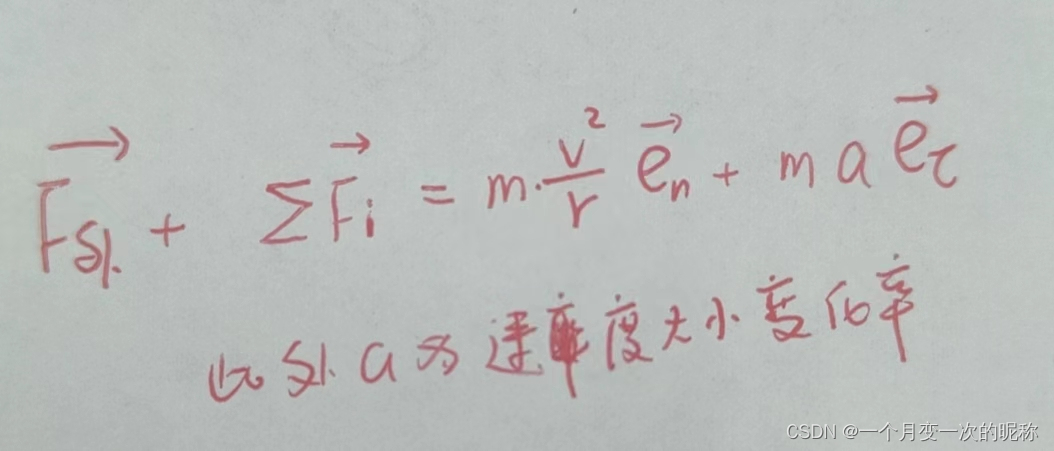 $\overrightarrow{F_{外}} + \sum \vec{F_i} = m \cdot \frac{v^2}{r} \vec{e_n} + m a \vec{e_\tau}$
此外 a 为速度大小变化率
CSDN @一个月变一次的昵称